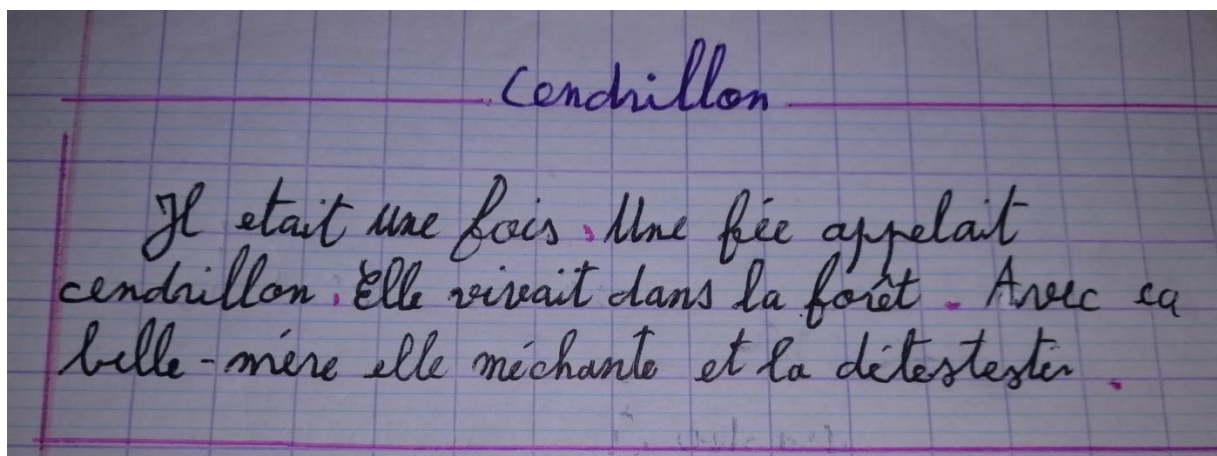 Cendrillon
Il etait une fois. Une fée appelait
cendrillon. Elle vivait dans la forêt. Avec ca
belle-mère elle méchante et la détestester.